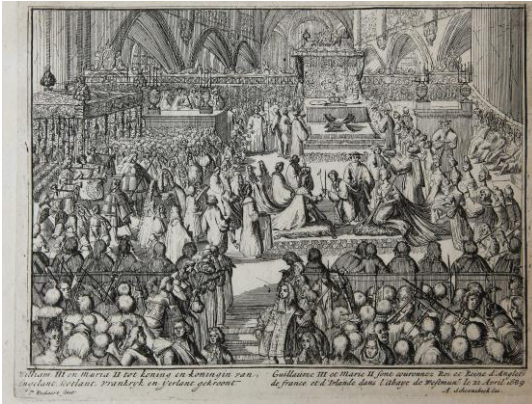 William III en Maria II tot koning en koningin van
Engelant, Scotlant, Vrankryk en Yerlant gekroont
Guillaume III et Marie II sont couronnez Roi et Reine d'Anglet
de france et d'Irlande dans l'abaye de Westmun. le 21 Avril. 1689
A. Schoonebeek fec.